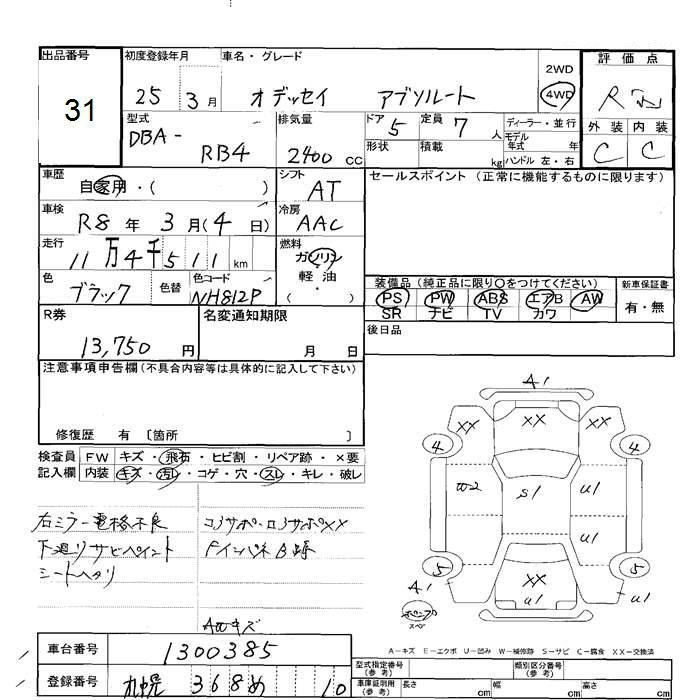 出品番号
初度登録年月
車名・グレード
2WD
4WD
評価点
31
25 3月
オデッセイ アブソルート
R
外装 内装
C C
型式
DBA-
RB4
排気量
2400 CC
ドア 5
定員 7 人
形状
積載 kg
ディーラー・並行
モデル
年式 年
ハンドル 左・右
車歴
自家用・( )
シフト
AT
セールスポイント (正常に機能するものに限ります)
車検
R8 年 3月(4日)
冷房
AAC
走行
11万4千511 km
燃料
ガソリン
軽油
・
( )
色
ブラック
色替
色コード
NH812P
装備品 (純正品に限り○をつけてください)
PS PW ABS エアB AW
SR ナビ TV カワ
新車保証書
有・無
R券
13,750 円
名変通知期限
月 日
後日品
注意事項申告欄 (不具合内容等は具体的に記入して下さい)
修復歴 有 〔箇所 〕
検査員
記入欄
FW キズ・飛石・ヒビ割・リペア跡・×要
内装 キズ・汚レ・コゲ・穴・スレ・キレ・破レ
右ミラー電格不良
下廻りサビペイント
シートヘタリ
コアサポ・ロアサポXX
AWキズ
A1
XX XX XX
4 4
W2 S1 U1
U1
5 5
XX
U1 U1
A1
スペア
A−キズ E−エクボ U−凹み W−補修跡 S−サビ C−腐食 XX−交換済
車台番号
1300385
登録番号
札幌 368め 10
型式指定番号
(参考)
類別区分番号
(参考)
車庫証明用
(参考)
長さ cm
幅 cm
高さ cm